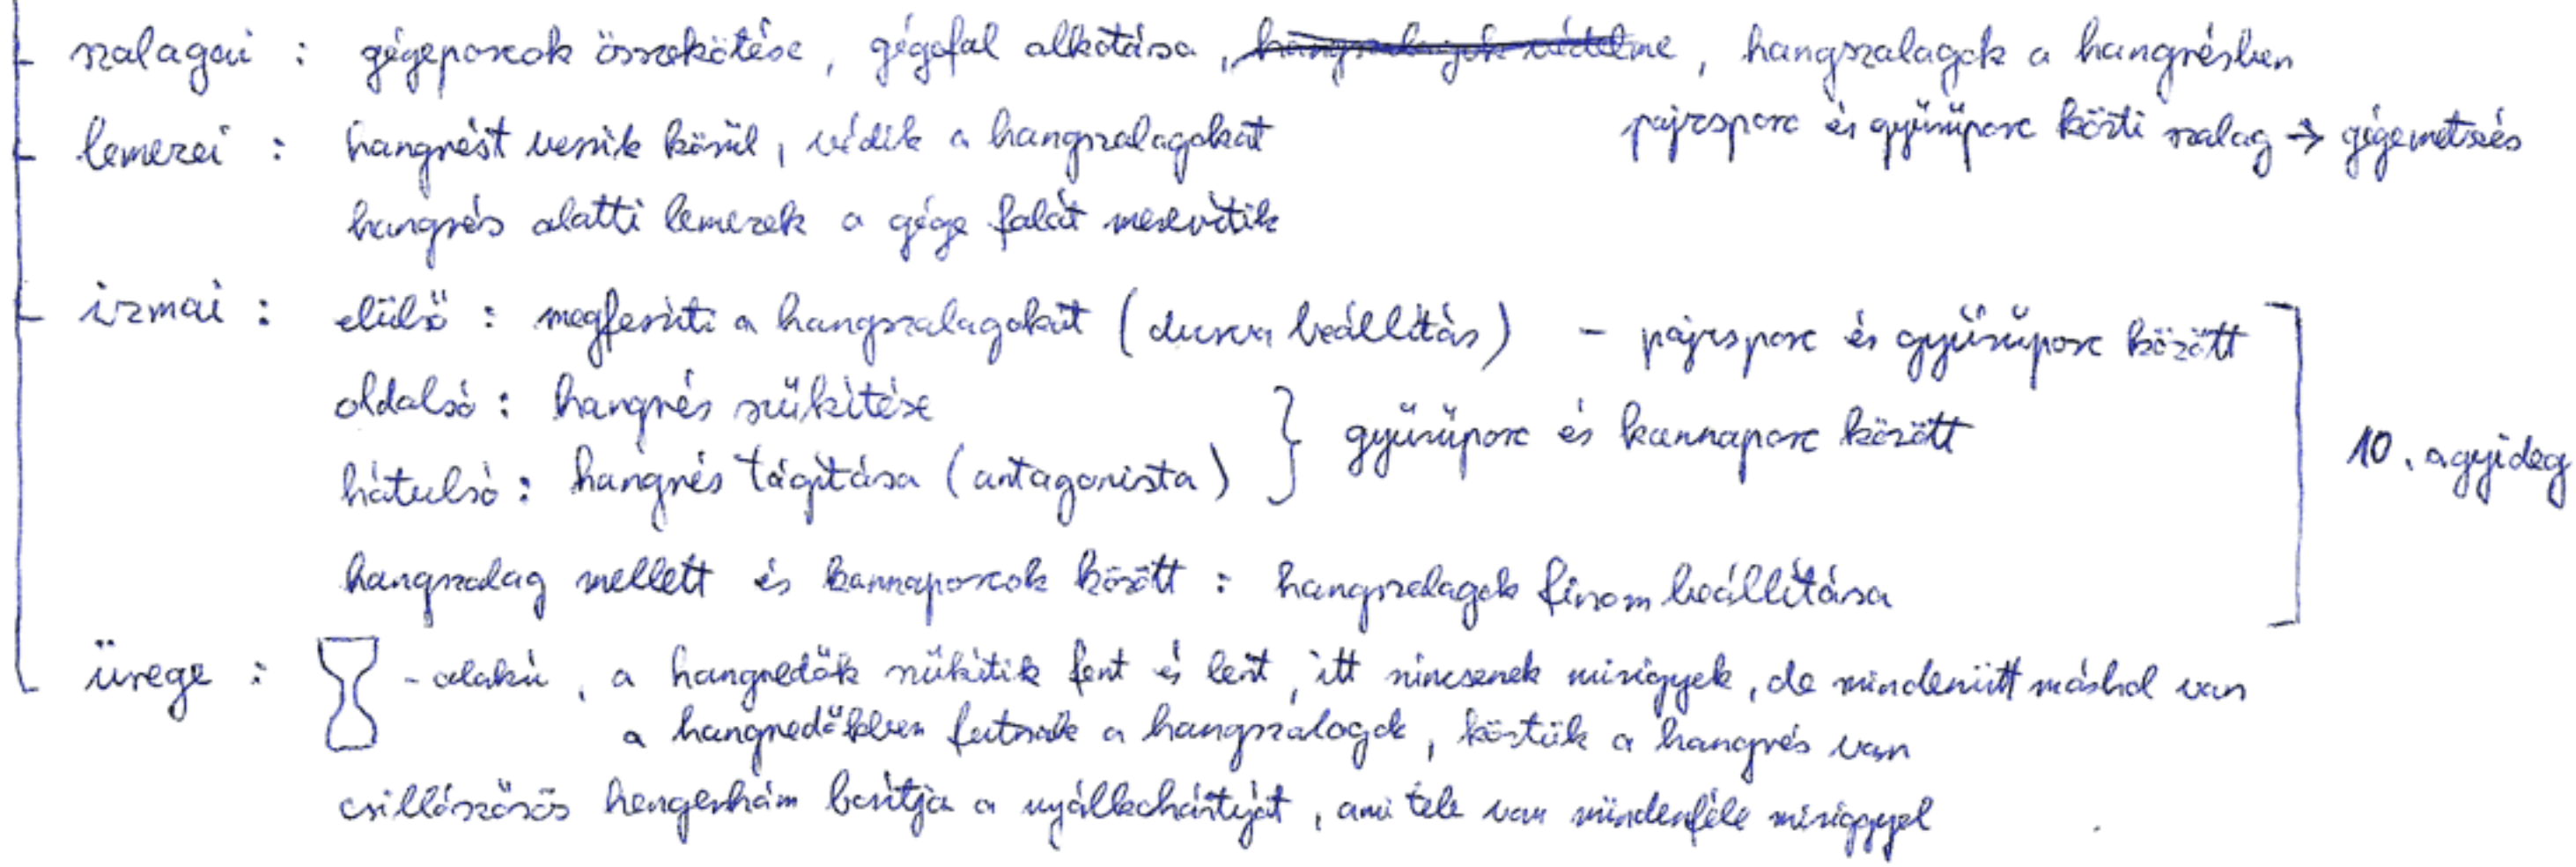 szalagai : gégeporcok összekötése, gégefal alkotása, hangszalagok védelme, hangszalagok a hangrésben
pajzsporc és gyűrűporc közti szalag → gégemetszés
lemezei : hangrést veszik körül, védik a hangszalagokat
hangrés alatti lemezek a gége falát merevítik
izmai : elülső : megfeszíti a hangszalagokat (durva beállítás) - pajzsporc és gyűrűporc között
oldalsó : hangrés szűkítése
hátulsó : hangrés tágítása (antagonista) } gyűrűporc és kannaporc között
10. agyideg
hangszalag mellett és kannaporcok között : hangszalagok finom beállítása
ürege : -alakú, a hangredők szűkítik fent és lent, itt nincsenek mirigyek, de mindenütt máshol van
a hangredőkben futnak a hangszalagok, köztük a hangrés van
csillószőrös hengerhám borítja a nyálkahártyát, ami tele van mindenféle miriggyel